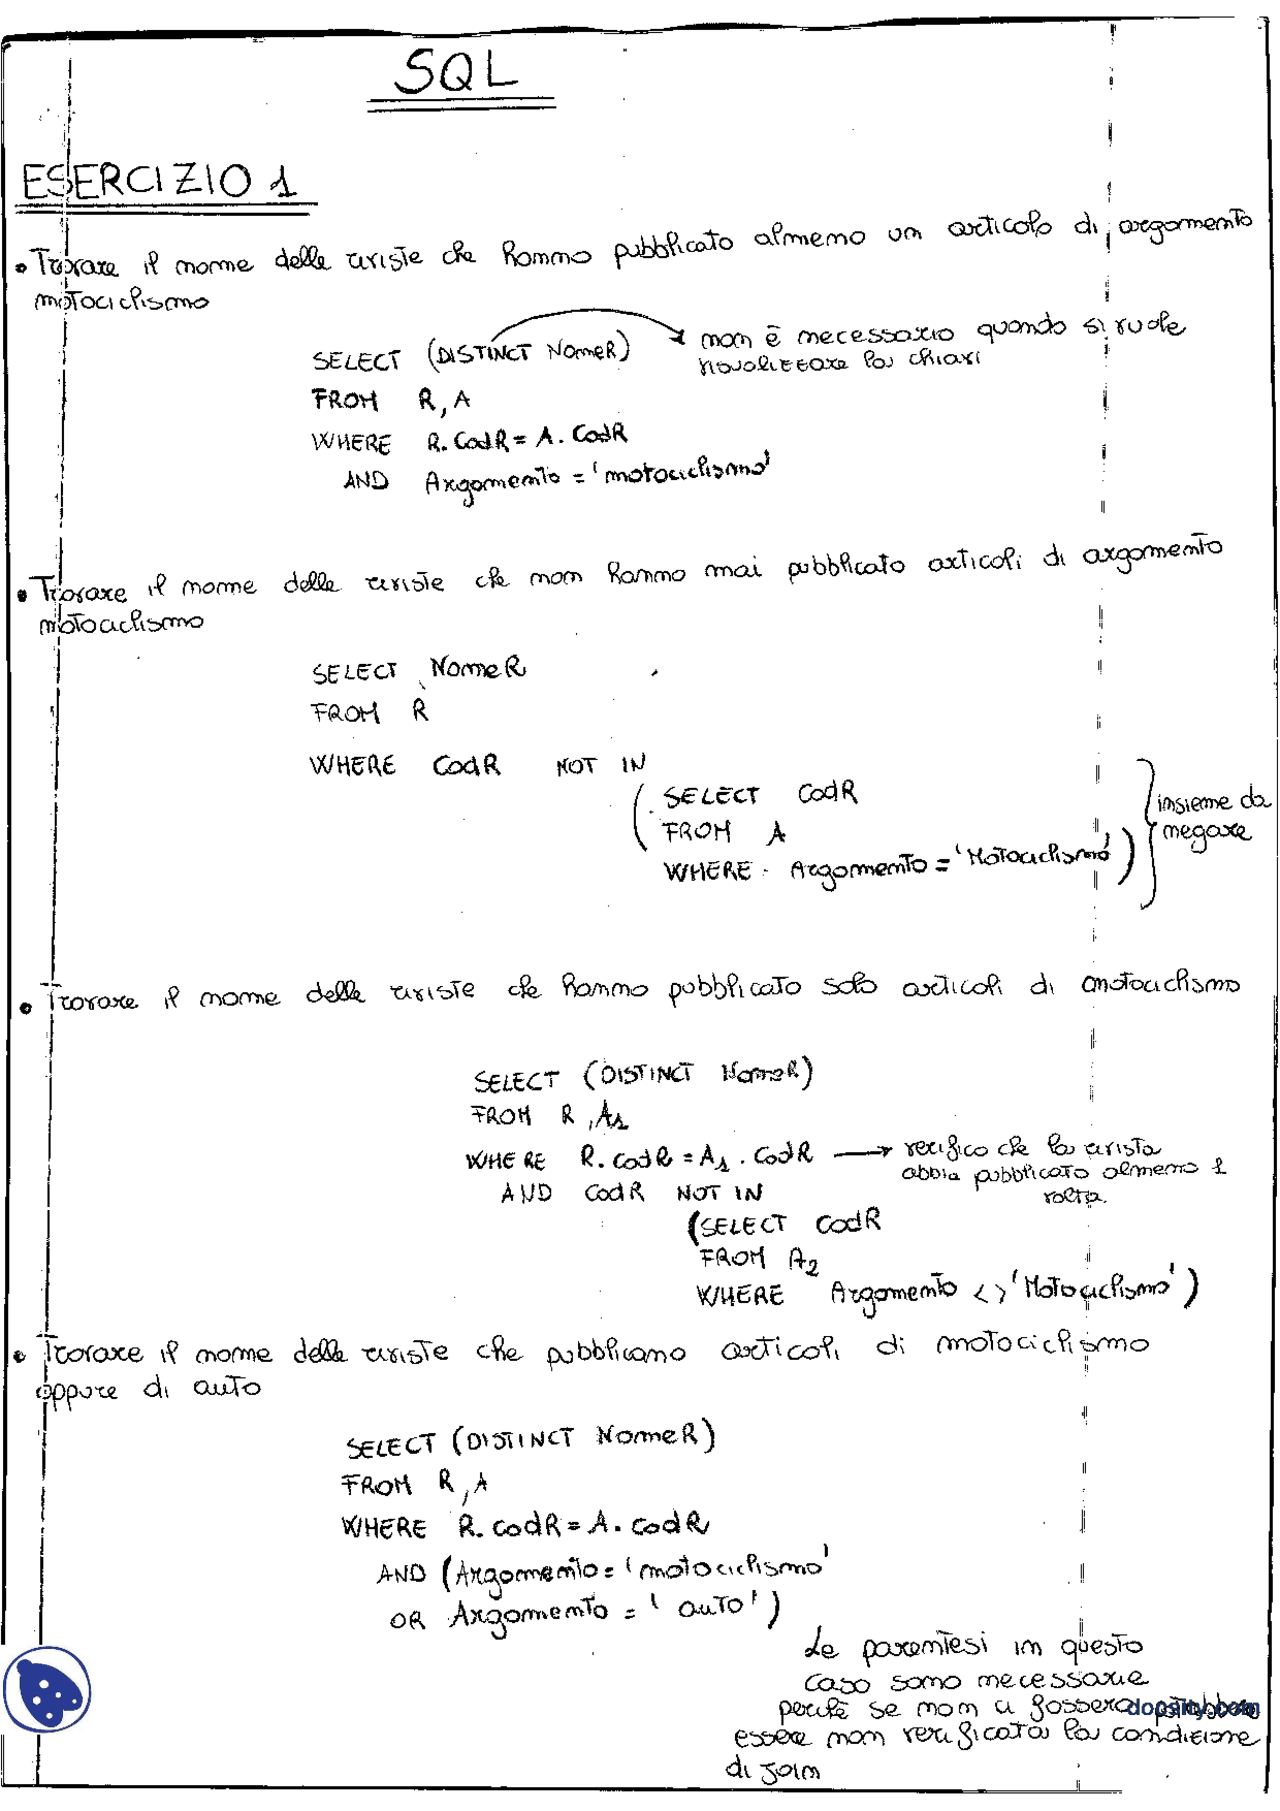 SQL
ESERCIZIO 1
• Trovare il nome delle riviste che hanno pubblicato almeno un articolo di argomento
motociclismo
SELECT (DISTINCT NomeR) → non è necessario quando si vuole
visualizzare la chiavi
FROM R, A
WHERE R.CodR = A.CodR
AND Argomento = 'motociclismo'
• Trovare il nome delle riviste che non hanno mai pubblicato articoli di argomento
motociclismo
SELECT NomeR
FROM R
WHERE CodR NOT IN
(SELECT CodR
FROM A
WHERE Argomento = 'Motociclismo')
insieme da
negare
• Trovare il nome delle riviste che hanno pubblicato solo articoli di motociclismo
SELECT (DISTINCT NomeR)
FROM R, A1
WHERE R.codR = A1.CodR → verifico che la rivista
abbia pubblicato almeno 1
volta.
AND CodR NOT IN
(SELECT CodR
FROM A2
WHERE Argomento <> 'Motociclismo')
• Trovare il nome delle riviste che pubblicano articoli di motociclismo
oppure di auto
SELECT (DISTINCT NomeR)
FROM R, A
WHERE R.codR = A.codR
AND (Argomento = 'motociclismo'
OR Argomento = 'auto')
Le parentesi in questo
caso sono necessarie
perché se non ci fossero
docsity.com
essere non verificata la condizione
di join